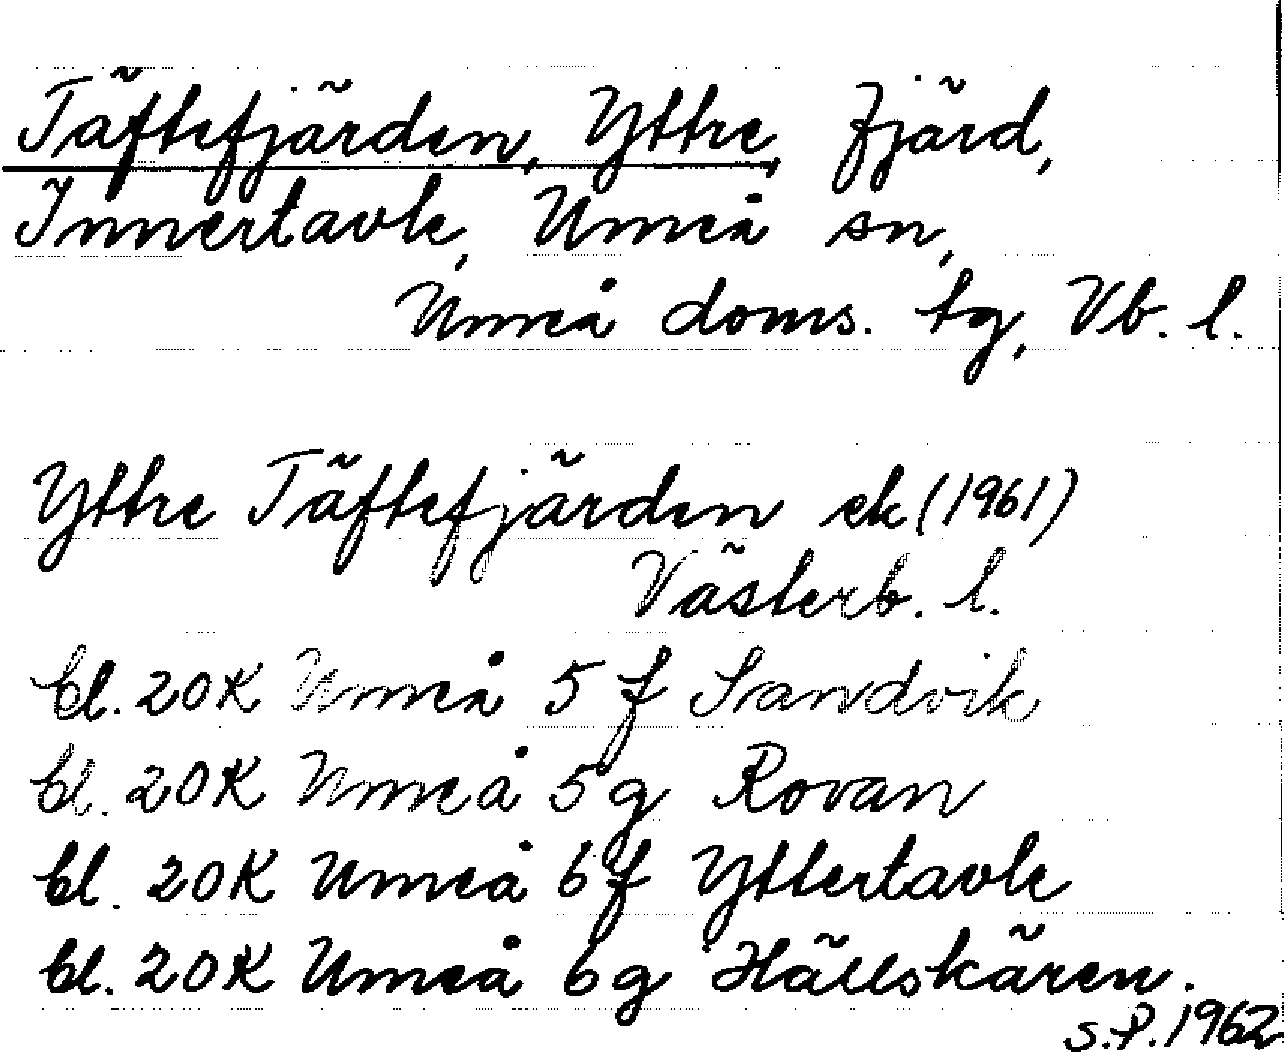 Täftefjärden, Yttre, fjärd,
Innertavle, Umeå sn,
Umeå doms. tg, Vb. l.
Yttre Täftefjärden ek (1961)
Västerb. l.
bl. 20K Umeå 5 f Sandvik
bl. 20K Umeå 5 g Rovan
bl. 20K Umeå 6 f Yttertavle
bl. 20K Umeå 6 g Hällskären.
S.P. 1962